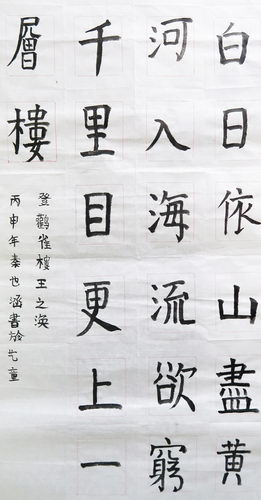 白日依山盡黄
河入海流欲窮
千里目更上一
層樓
登鸛雀樓王之渙
丙申年秦也涵書於七童